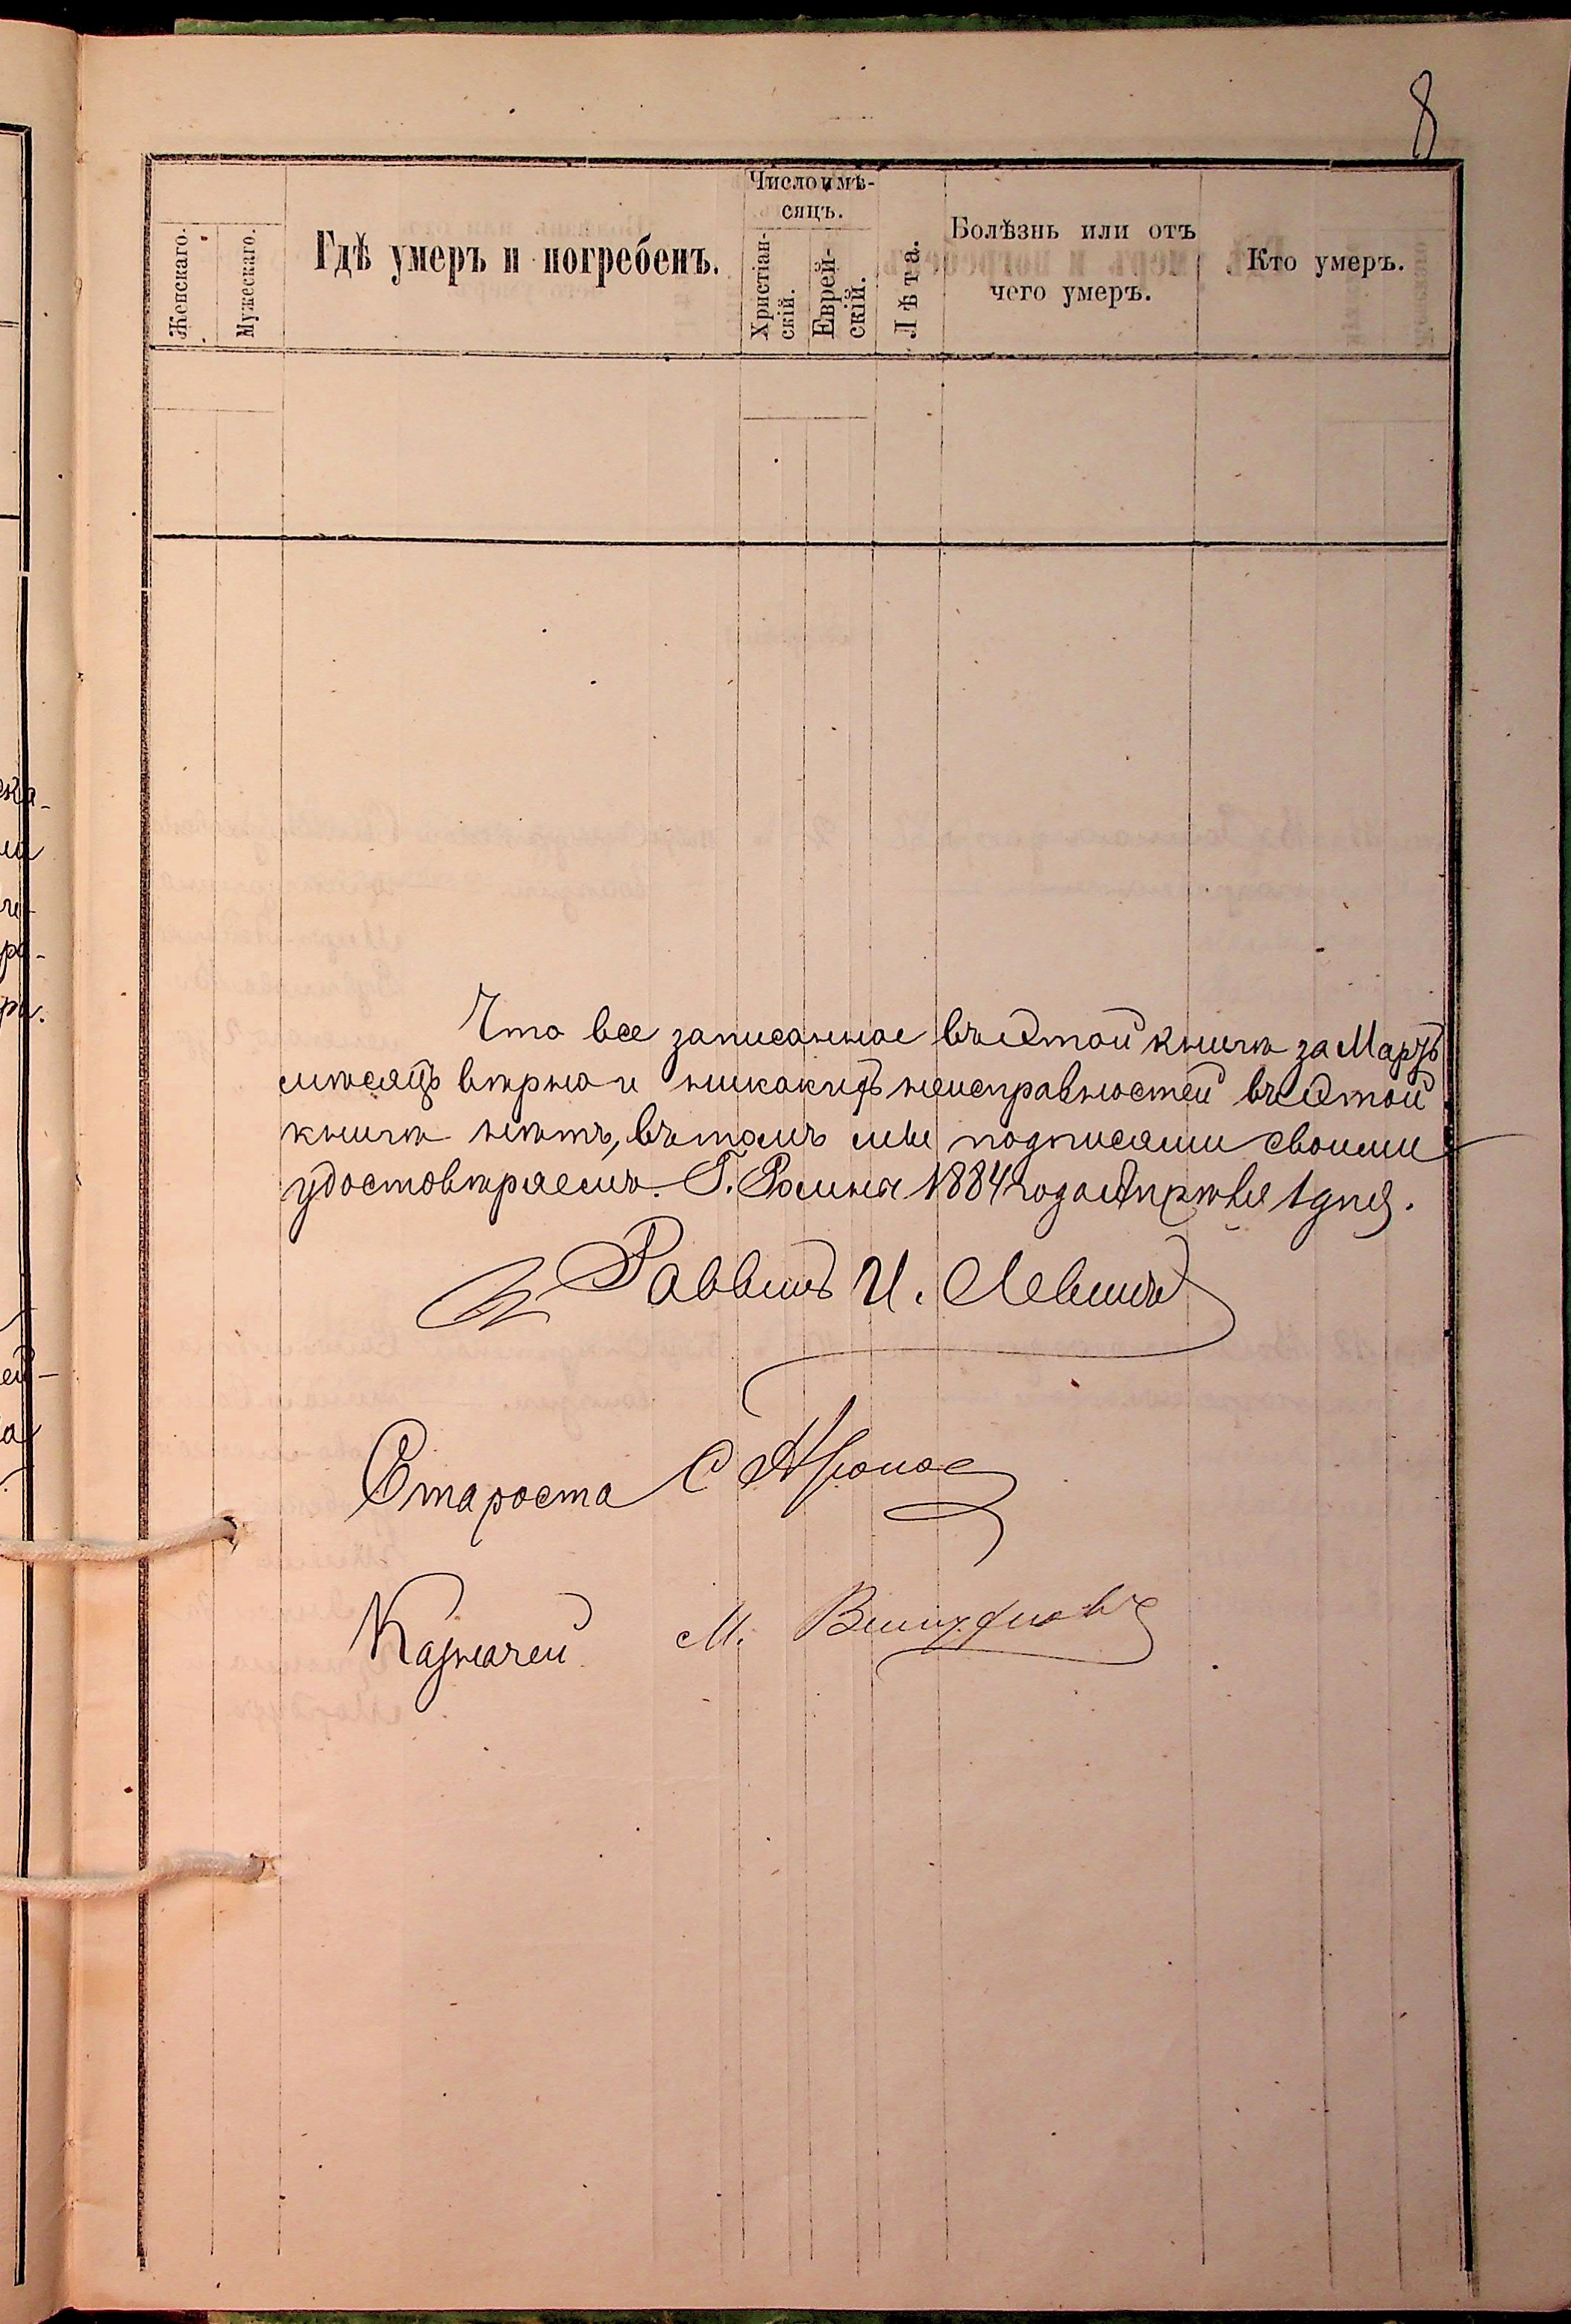 8
Число и мѣ-
сяцъ.
Женскаго.
Мужескаго.
Гдѣ умеръ и погребенъ.
Христіан-
скій.
Еврей-
скій.
Лѣта.
Болѣзнь или отъ
чего умеръ.
Кто умеръ.
Что все записанное въ этой книгѣ за Мартъ
мѣсяцъ вѣрно и никакихъ неисправностей въ этой
книгѣ нѣтъ, въ томъ мы подписями своими
удостовѣряемъ. Г. Ромны 1884 года Апрѣля 1 дня.
Раввинъ И. Левинъ
Староста С
Казначей М.